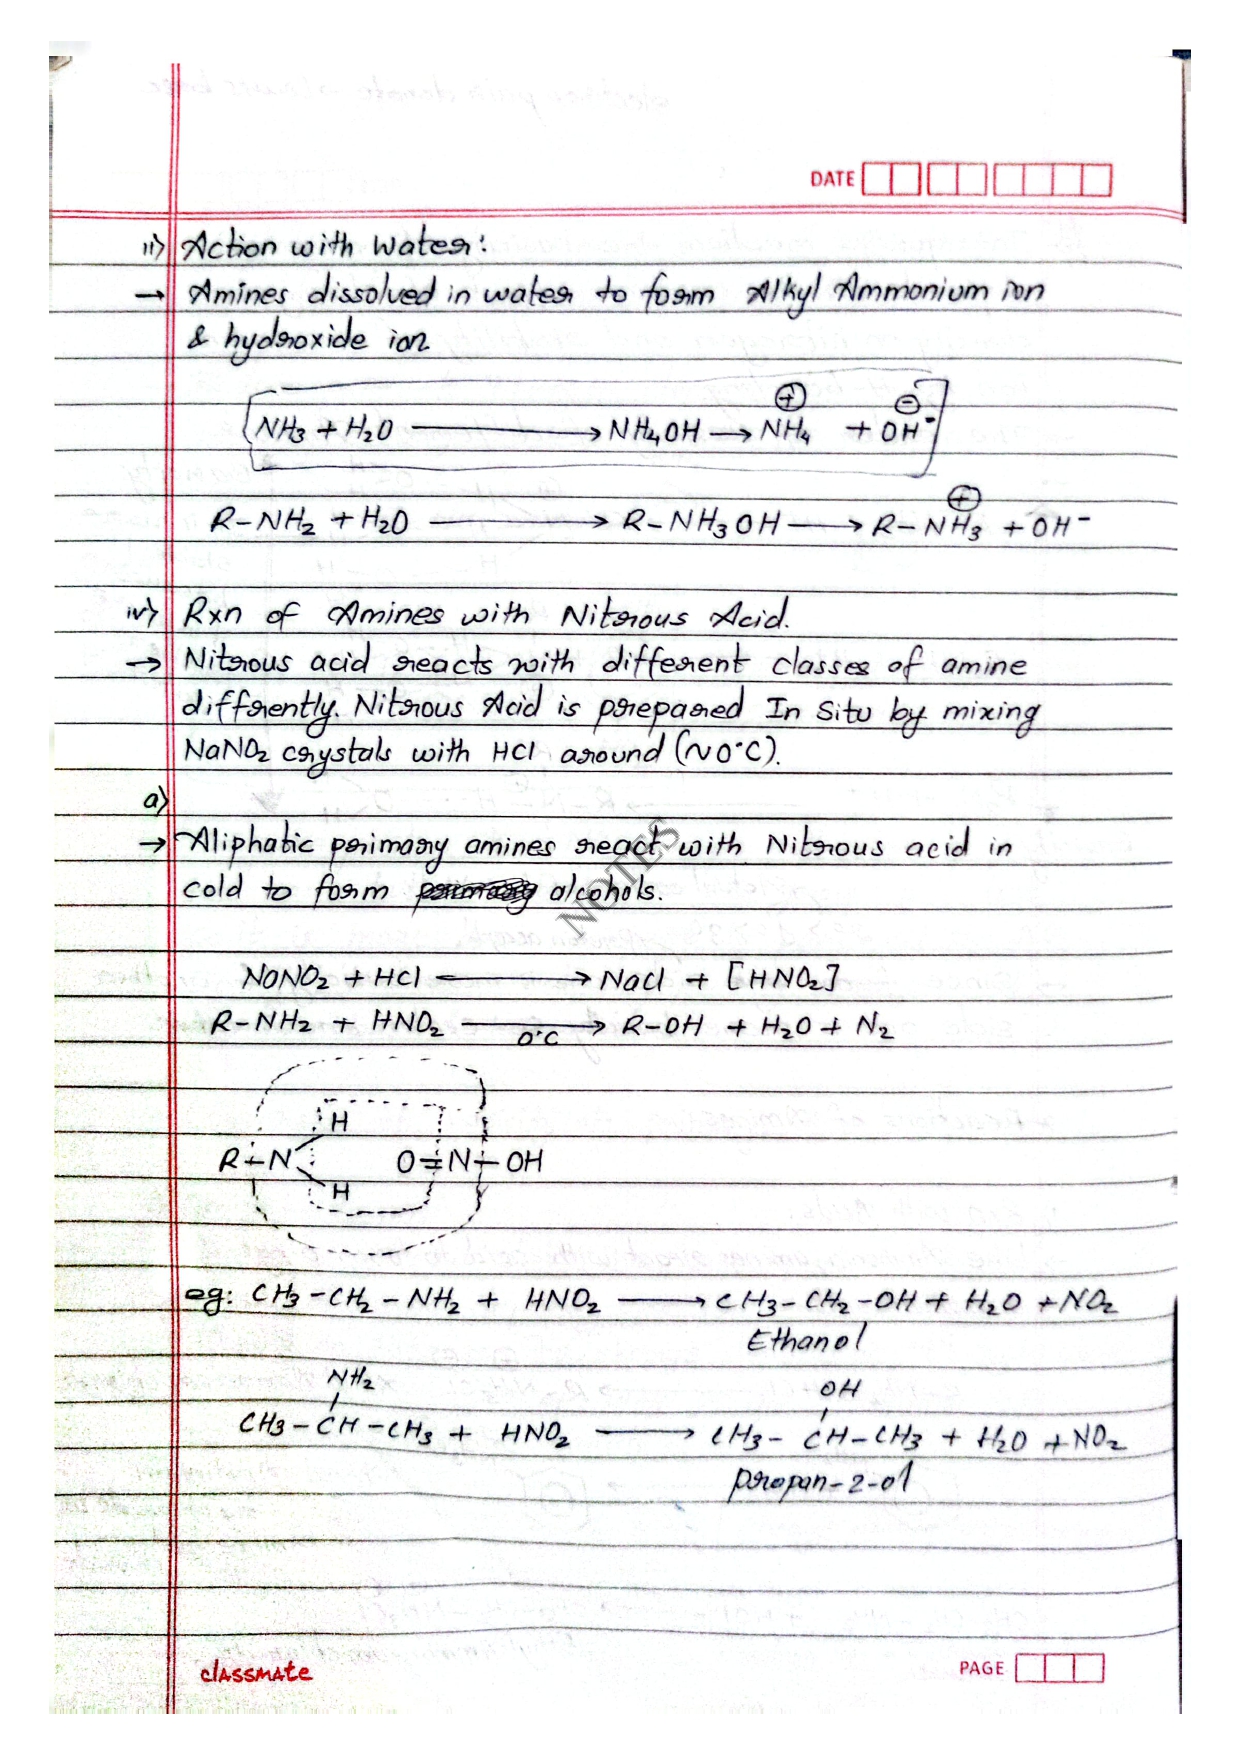 DATE
ii) Action with Water:
→ Amines dissolved in water to form Alkyl Ammonium ion
& hydroxide ion
NH₃ + H₂O ⟶ NH₄OH ⟶ NH₄⊕ + OH⁻ ⊖
R-NH₂ + H₂O ⟶ R-NH₃OH ⟶ R-NH₃⊕ + OH⁻
iv) Rxn of Amines with Nitrous Acid.
→ Nitrous acid reacts with different classes of amine
diffrently. Nitrous Acid is prepared In Situ by mixing
NaNO₂ crystals with HCl around (~0°C).
a)
→ Aliphatic primary amines react with Nitrous acid in
cold to form alcohols.
NaNO₂ + HCl ⟶ NaCl + [HNO₂]
R-NH₂ + HNO₂ ⟶ R-OH + H₂O + N₂
0°C
H
R-N O=N-OH
H
eg: CH₃-CH₂-NH₂ + HNO₂ ⟶ CH₃-CH₂-OH + H₂O + NO₂
Ethanol
NH₂ OH
CH₃-CH-CH₃ + HNO₂ ⟶ CH₃-CH-CH₃ + H₂O + NO₂
propan-2-ol
NOTES
classmate
PAGE